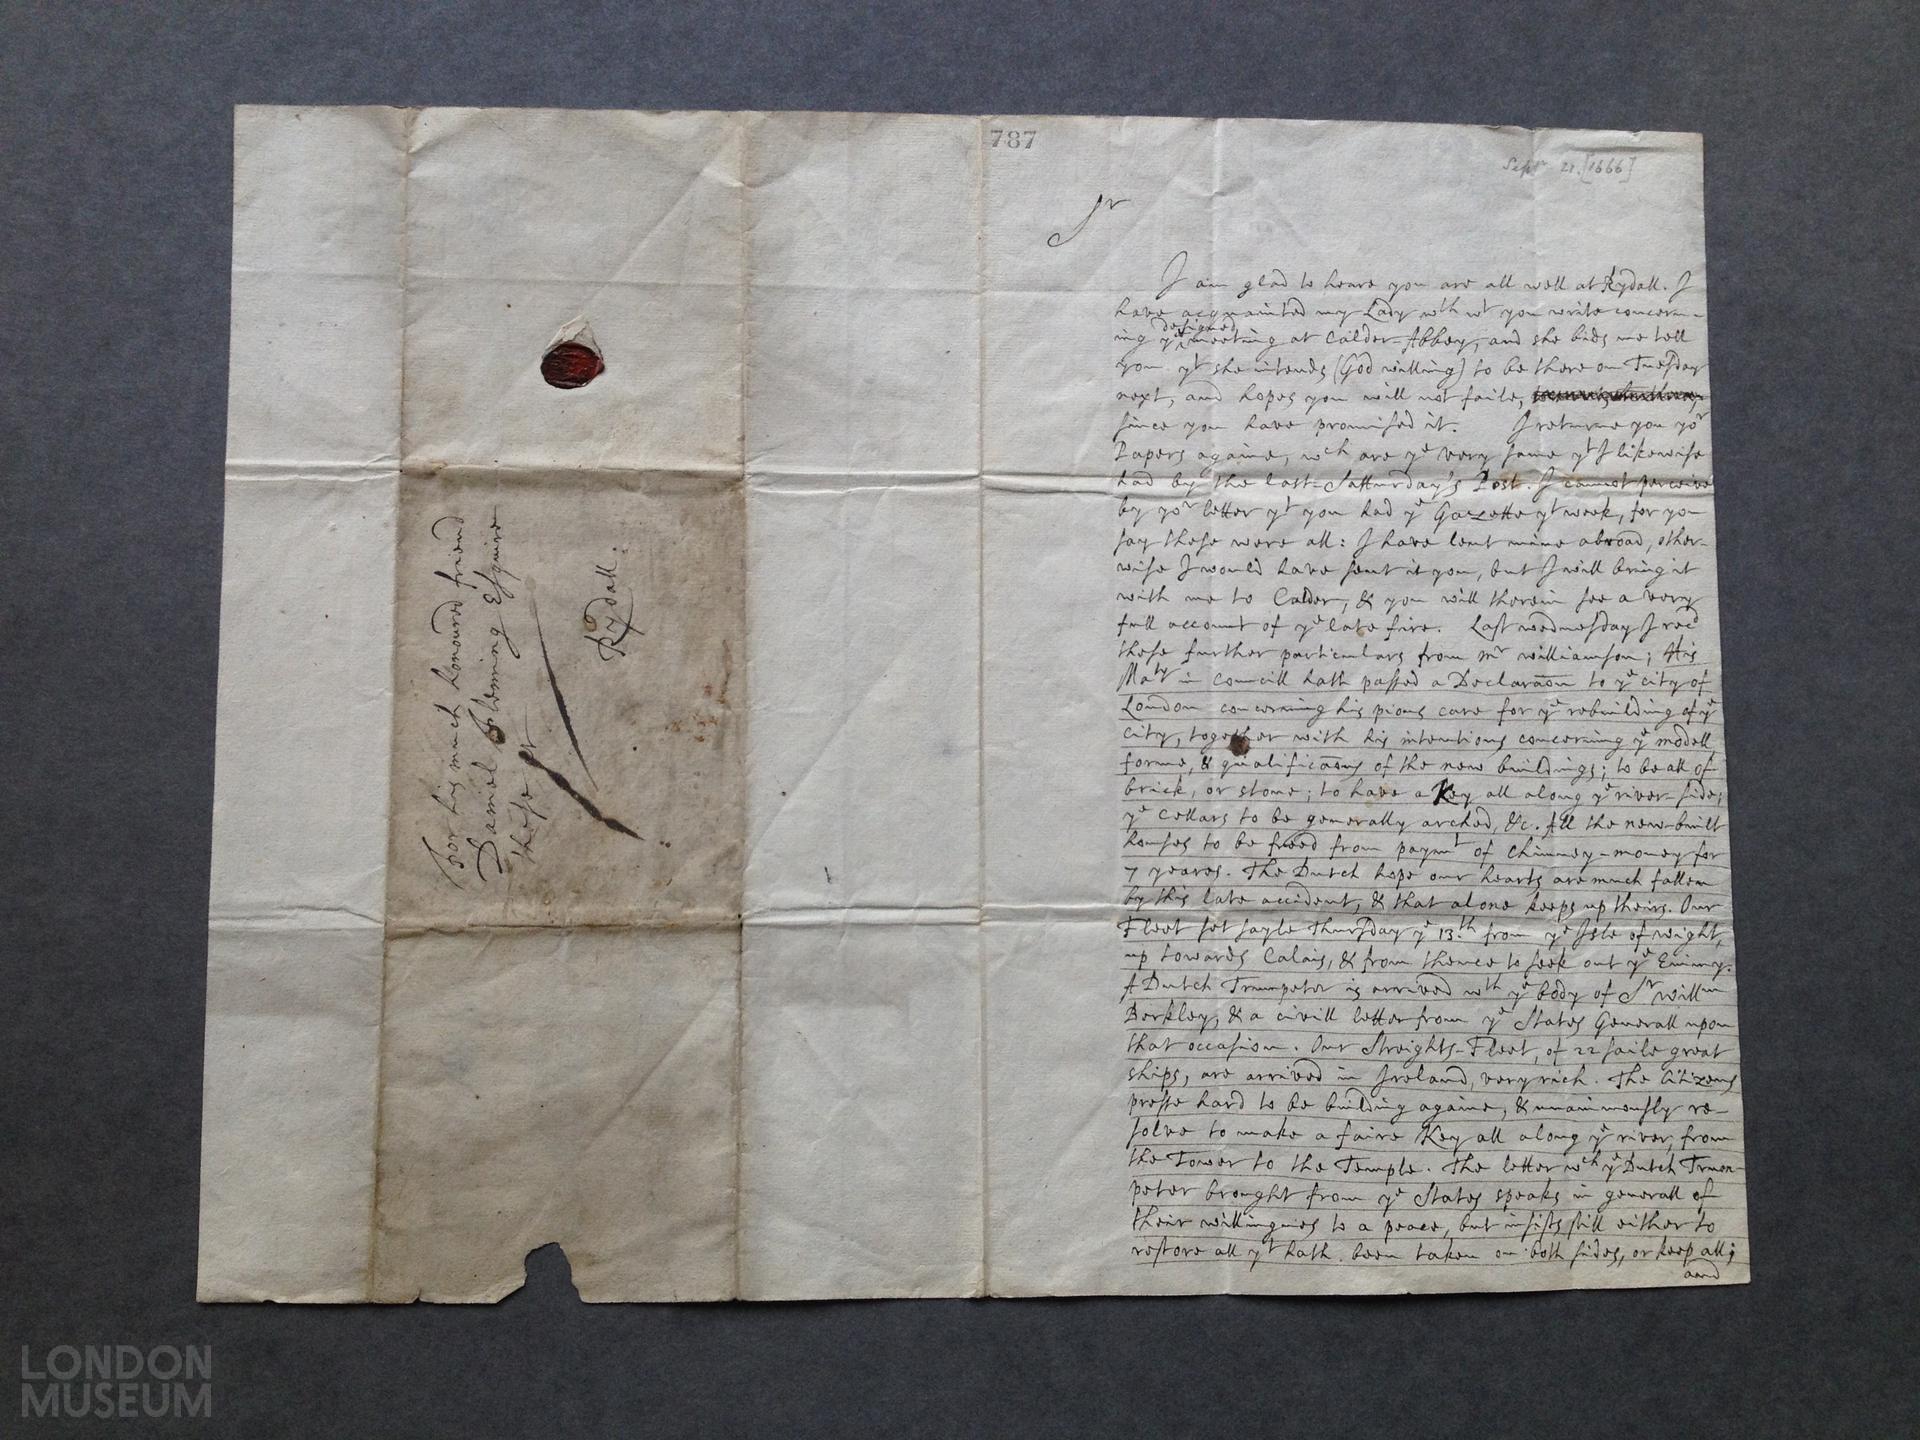 For his much honoured friend
Daniel Fleming Esquire
these
Rydall.
787
Sepr 21. [1666]
Sr
I am glad to heare you are all well at Rydall. I
have acquainted my Lady wth wt you write concern-
designed
ing ye meeting at Calder-Abbey, and she bids me tell
you yt she intends (God willing) to be there on Tuesday
next, and hopes you will not faile,
since you have promised it. I returne you yor
Papers againe, wch are ye very same yt I likewise
had by the last Satturday's Post. I cannot perceive
by yor letter yt you had ye Gazette yt week, for you
say these were all: I have lent mine abroad, other-
wise I would have sent it you, but I will bring it
with me to Calder, & you will therein see a very
full account of ye late fire. Last wednesday I recd
these further particulars from Mr Williamson; His
Maty in Councill hath passed a Declaraõn to ye city of
London concerning his pious care for ye rebuilding of ye
city, together with his intentions concerning ye modell
forme, & qualificaõns of the new buildings; to be all of
brick, or stone; to have a Key all along ye river-side;
ye cellars to be generally arched, &c. All the new-built
houses to be freed from paymt of chimney-money for
7 yeares. The Dutch hope our hearts are much fallen
by this late accident, & that alone keeps up theirs. Our
Fleet set sayle Thursday ye 13.th from ye Isle of wight,
up towards Calais, & from thence to seek out ye Enimy.
A Dutch Trumpeter is arrived wth ye body of Sr Willm
Berkley, & a civill letter from ye States Generall upon
that occasion. Our Streights-Fleet, of 22 saile great
ships, are arrived in Ireland, very rich. The Citizens
presse hard to be building againe, & unanimously re-
solve to make a faire Key all along ye river, from
the Tower to the Temple. The letter wch ye Dutch Trum-
peter brought from ye States speaks in generall of
their willingnes to a peace, but insists still either to
restore all yt hath been taken on both sides, or keep all;
and
LONDON
MUSEUM